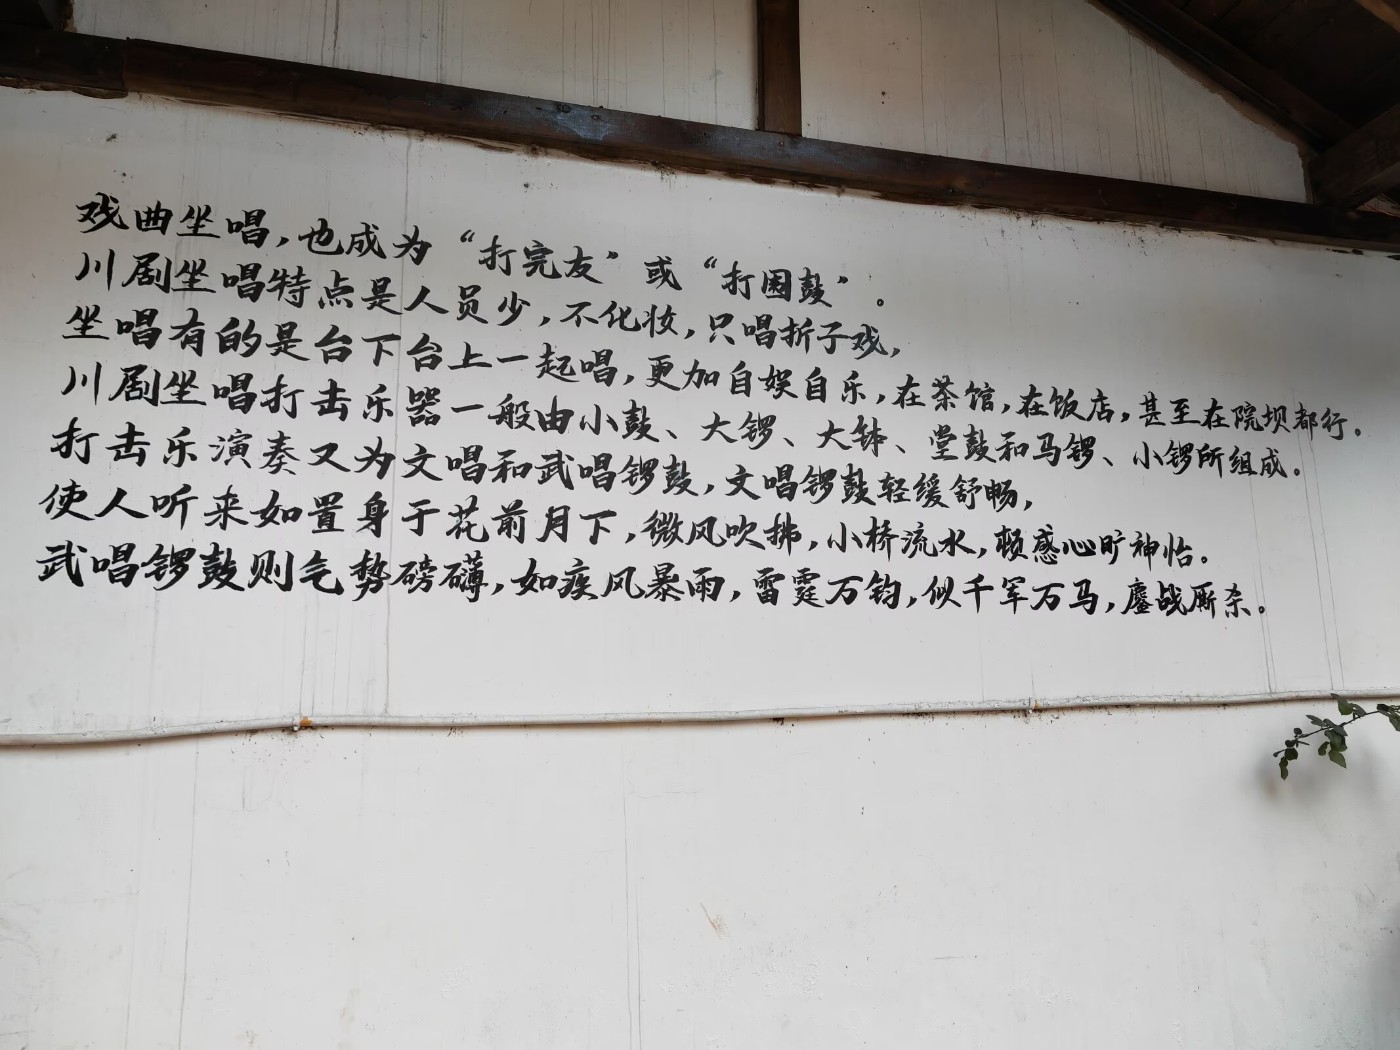 戏曲坐唱，也成为“打完友”或“打围鼓”。
川剧坐唱特点是人员少，不化妆，只唱折子戏，
坐唱有的是台下台上一起唱，更加自娱自乐，在茶馆，在饭店，甚至在院坝都行。
川剧坐唱打击乐器一般由小鼓、大锣、大钵、堂鼓和马锣、小锣所组成。
打击乐演奏又为文唱和武唱锣鼓，文唱锣鼓轻缓舒畅，
使人听来如置身于花前月下，微风吹拂，小桥流水，顿感心旷神怡。
武唱锣鼓则气势磅礴，如疾风暴雨，雷霆万钧，似千军万马，鏖战厮杀。